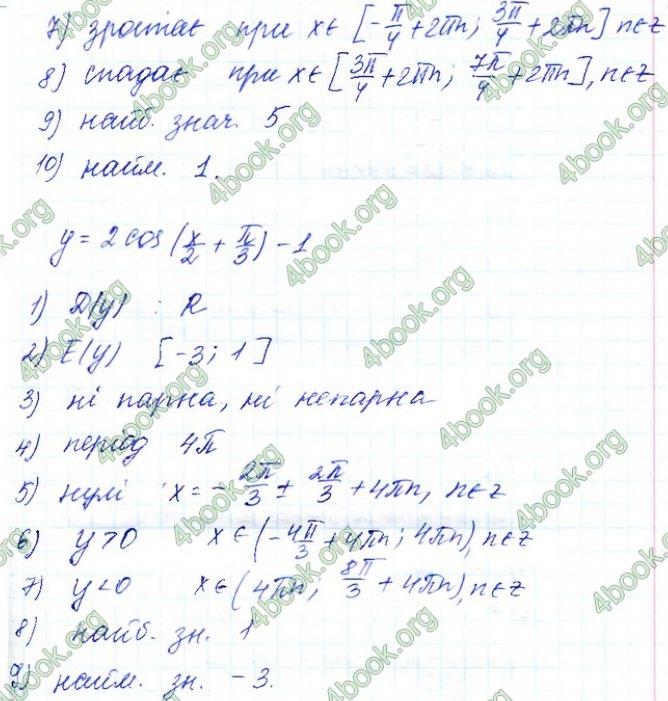 7) зростає при x ∈ [-π/4 + 2πn; 3π/4 + 2πn] n∈z
8) спадає при x ∈ [3π/4 + 2πn; 7π/4 + 2πn], n∈z
9) найб. знач. 5
10) найм. 1.
y = 2 cos (x/2 + π/3) - 1
1) D(y) : R
2) E(y) [-3; 1]
3) ні парна, ні непарна
4) період 4π
5) нулі x = - 2π/3 ± 2π/3 + 4πn, n∈z
6) y>0 x∈(-4π/3 + 4πn; 4πn), n∈z
7) y<0 x∈(4πn, 8π/3 + 4πn), n∈z
8) найб. зн. 1
9) найм. зн. -3.
4book.org